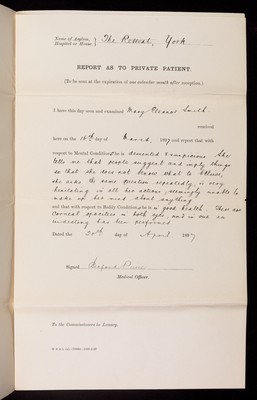 Name of Asylum,
Hospital or House. } The Retreat, York
REPORT AS TO PRIVATE PATIENT.
(To be sent at the expiration of one calendar month after reception.)
I have this day seen and examined Mary Eleanor Smith
received
here on the day of March, 189 and report that with
respect to Mental Condition, she is demented & suspicious She
tells me that people suggest and imply things
so that she does not know what to believe,
she asks the same question repeatedly, is very
hesitating in all her actions & seemingly unable to
make up her mind about anything
and that with respect to Bodily Condition, she is in good health There are
corneal opacities in both eyes, and in one an
iridectomy has been performed
Dated the 20th day of April 189
Signed Bedford Pierce
Medical Officer.
To the Commissioners in Lunacy.